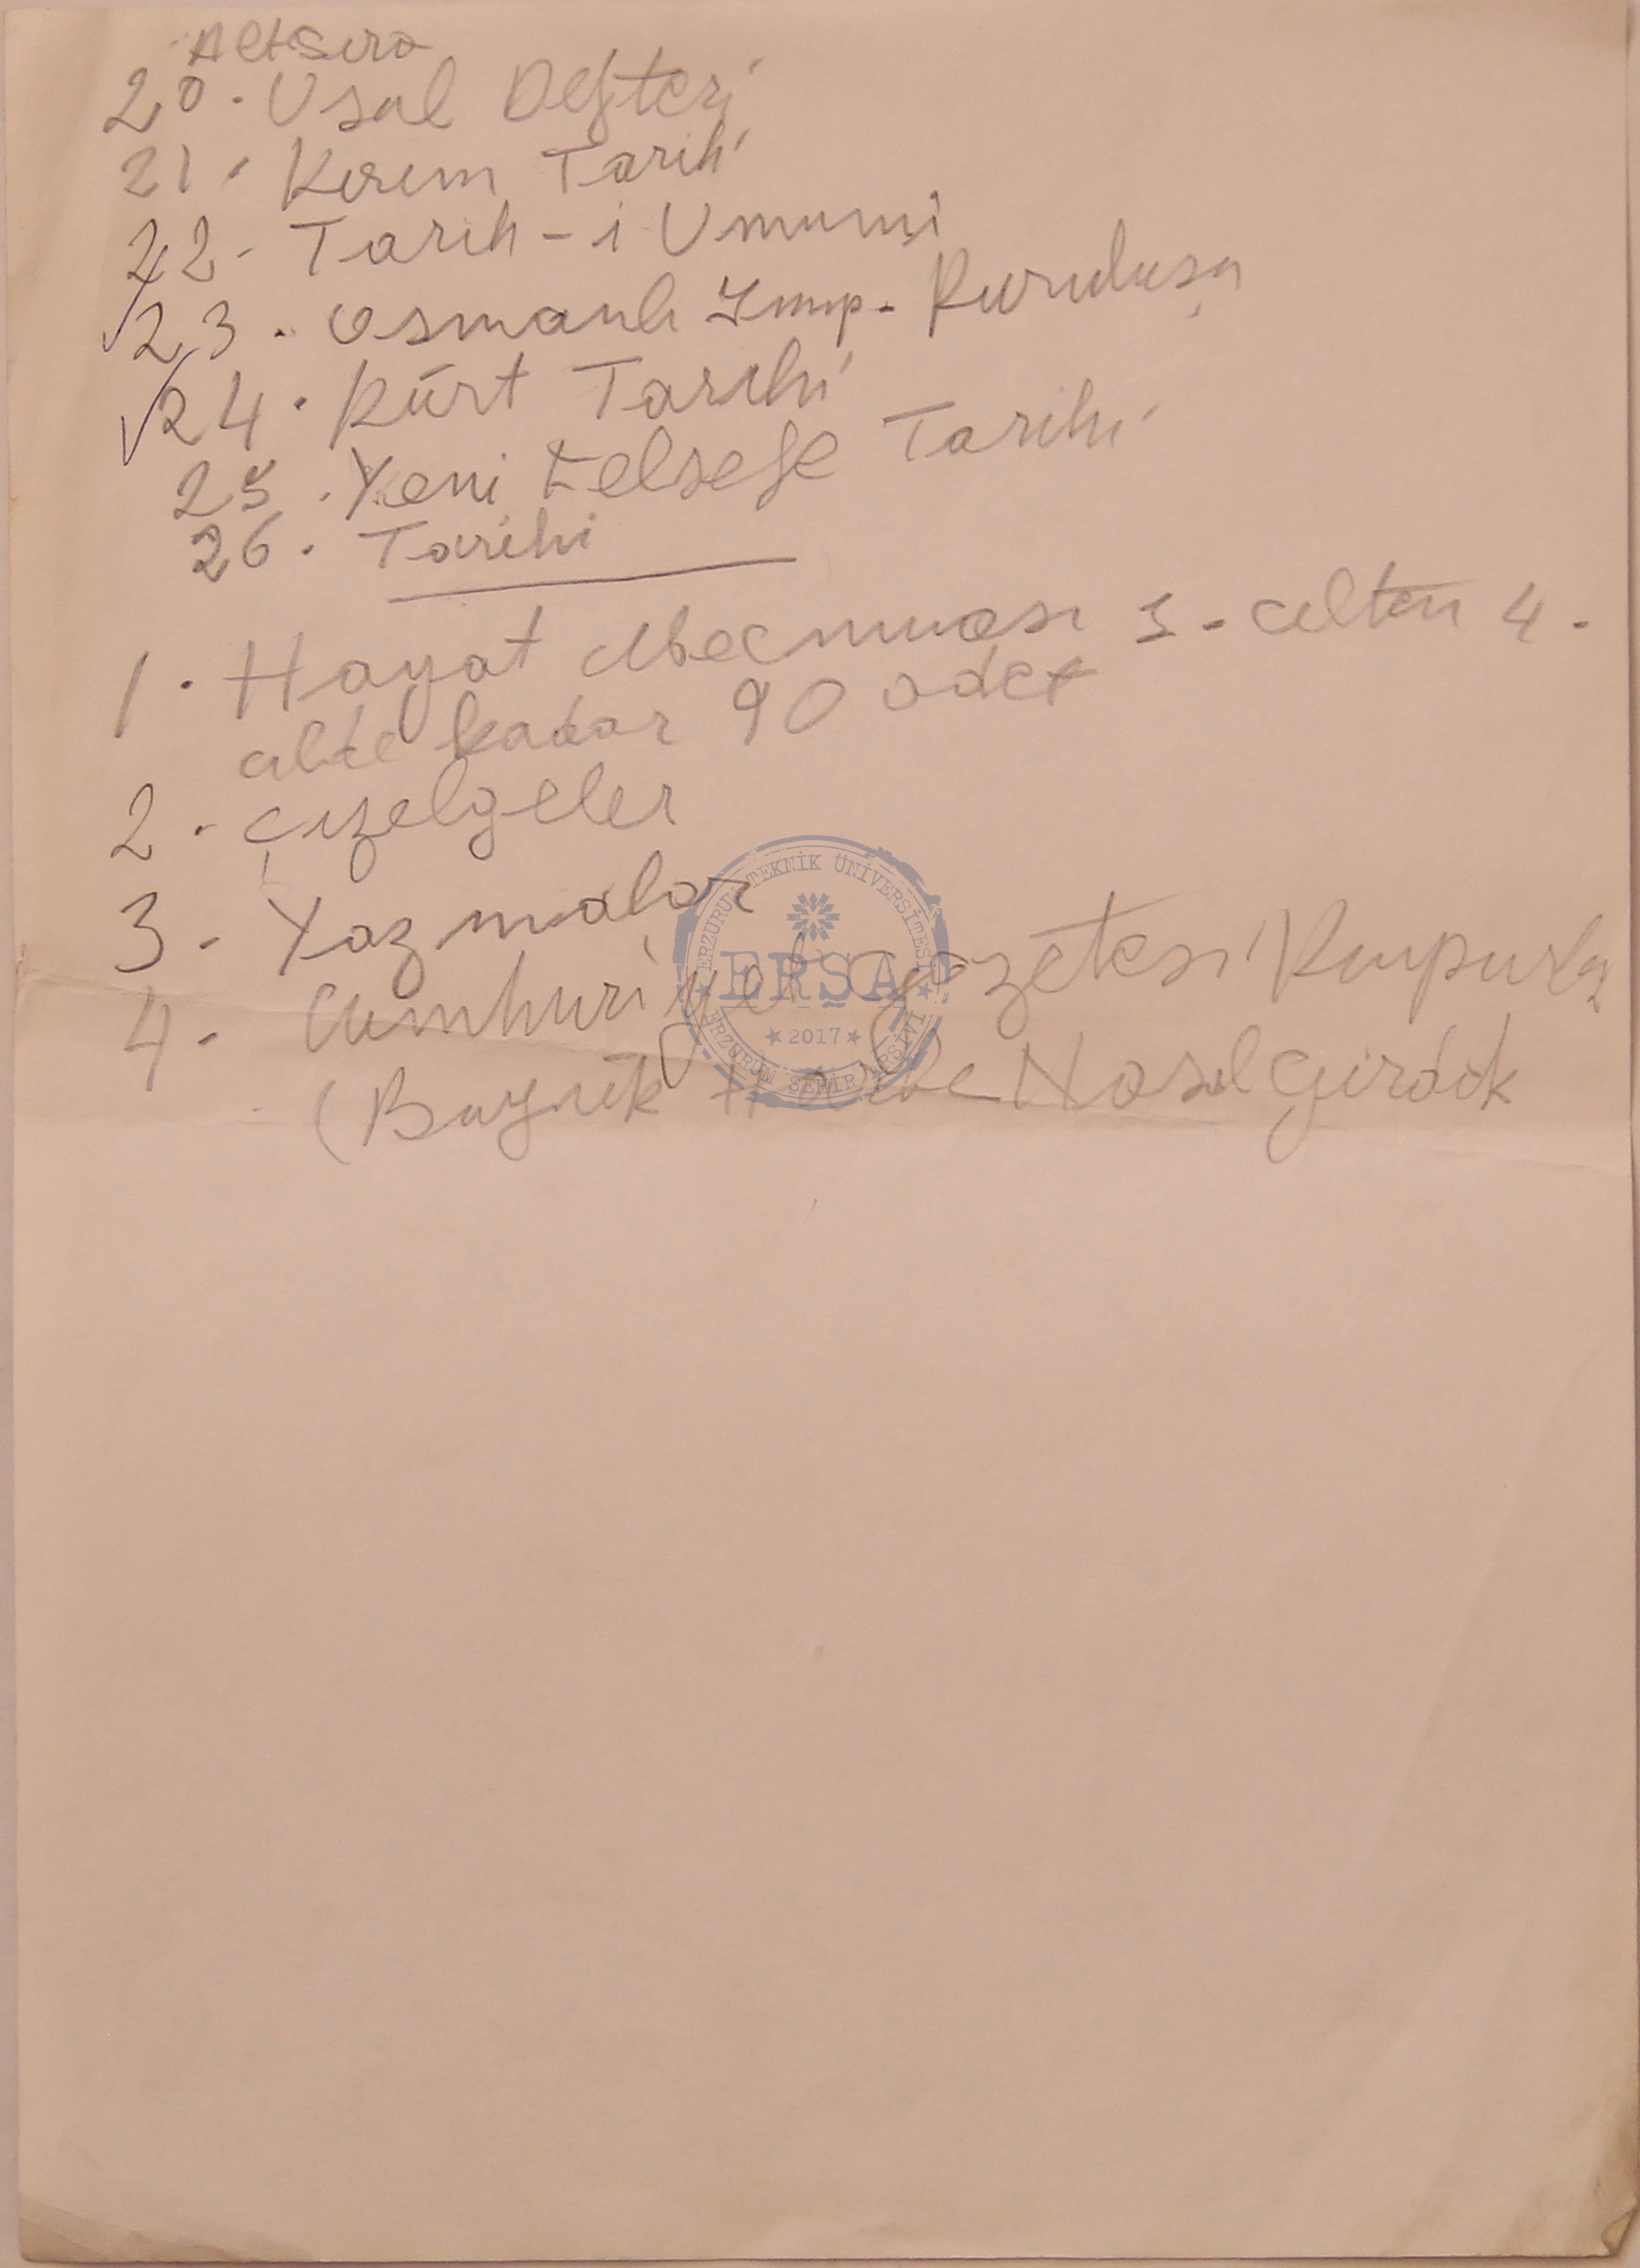 Alt Sıra
20. Usal Defteri
21. Kırım Tarihi
22- Tarih-i Umumi
23. Osmanlı İmp. Kuruluşu
24. Kürt Tarihi
25. Yeni Felsefe Tarihi
26. Tarihi
1. Hayat Mecmuası 1-ciltten 4.
cilde kadar 90 adet
2. Çizelgeler
3- Yazmalar
4- Cumhuriyet gazetesi Kupürlü
(Büyük Harbe Nasıl Girdik
ERZURUM TEKNİK ÜNİVERSİTESİ
ERŞA
★ 2017 ★
ERZURUM ŞEHİR ARŞİVİ